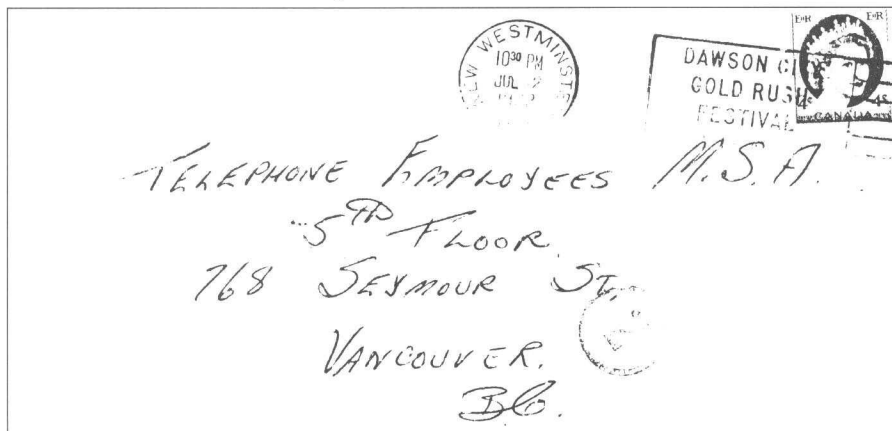 NEW WESTMINSTER
10 30 PM
JUL 2
DAWSON CI
GOLD RUSH
FESTIVAL
E II R E II R
4c 4c
CANADA
TELEPHONE EMPLOYEES M.S.A.
5TH FLOOR
768 SEYMOUR ST.
VANCOUVER.
B.C.